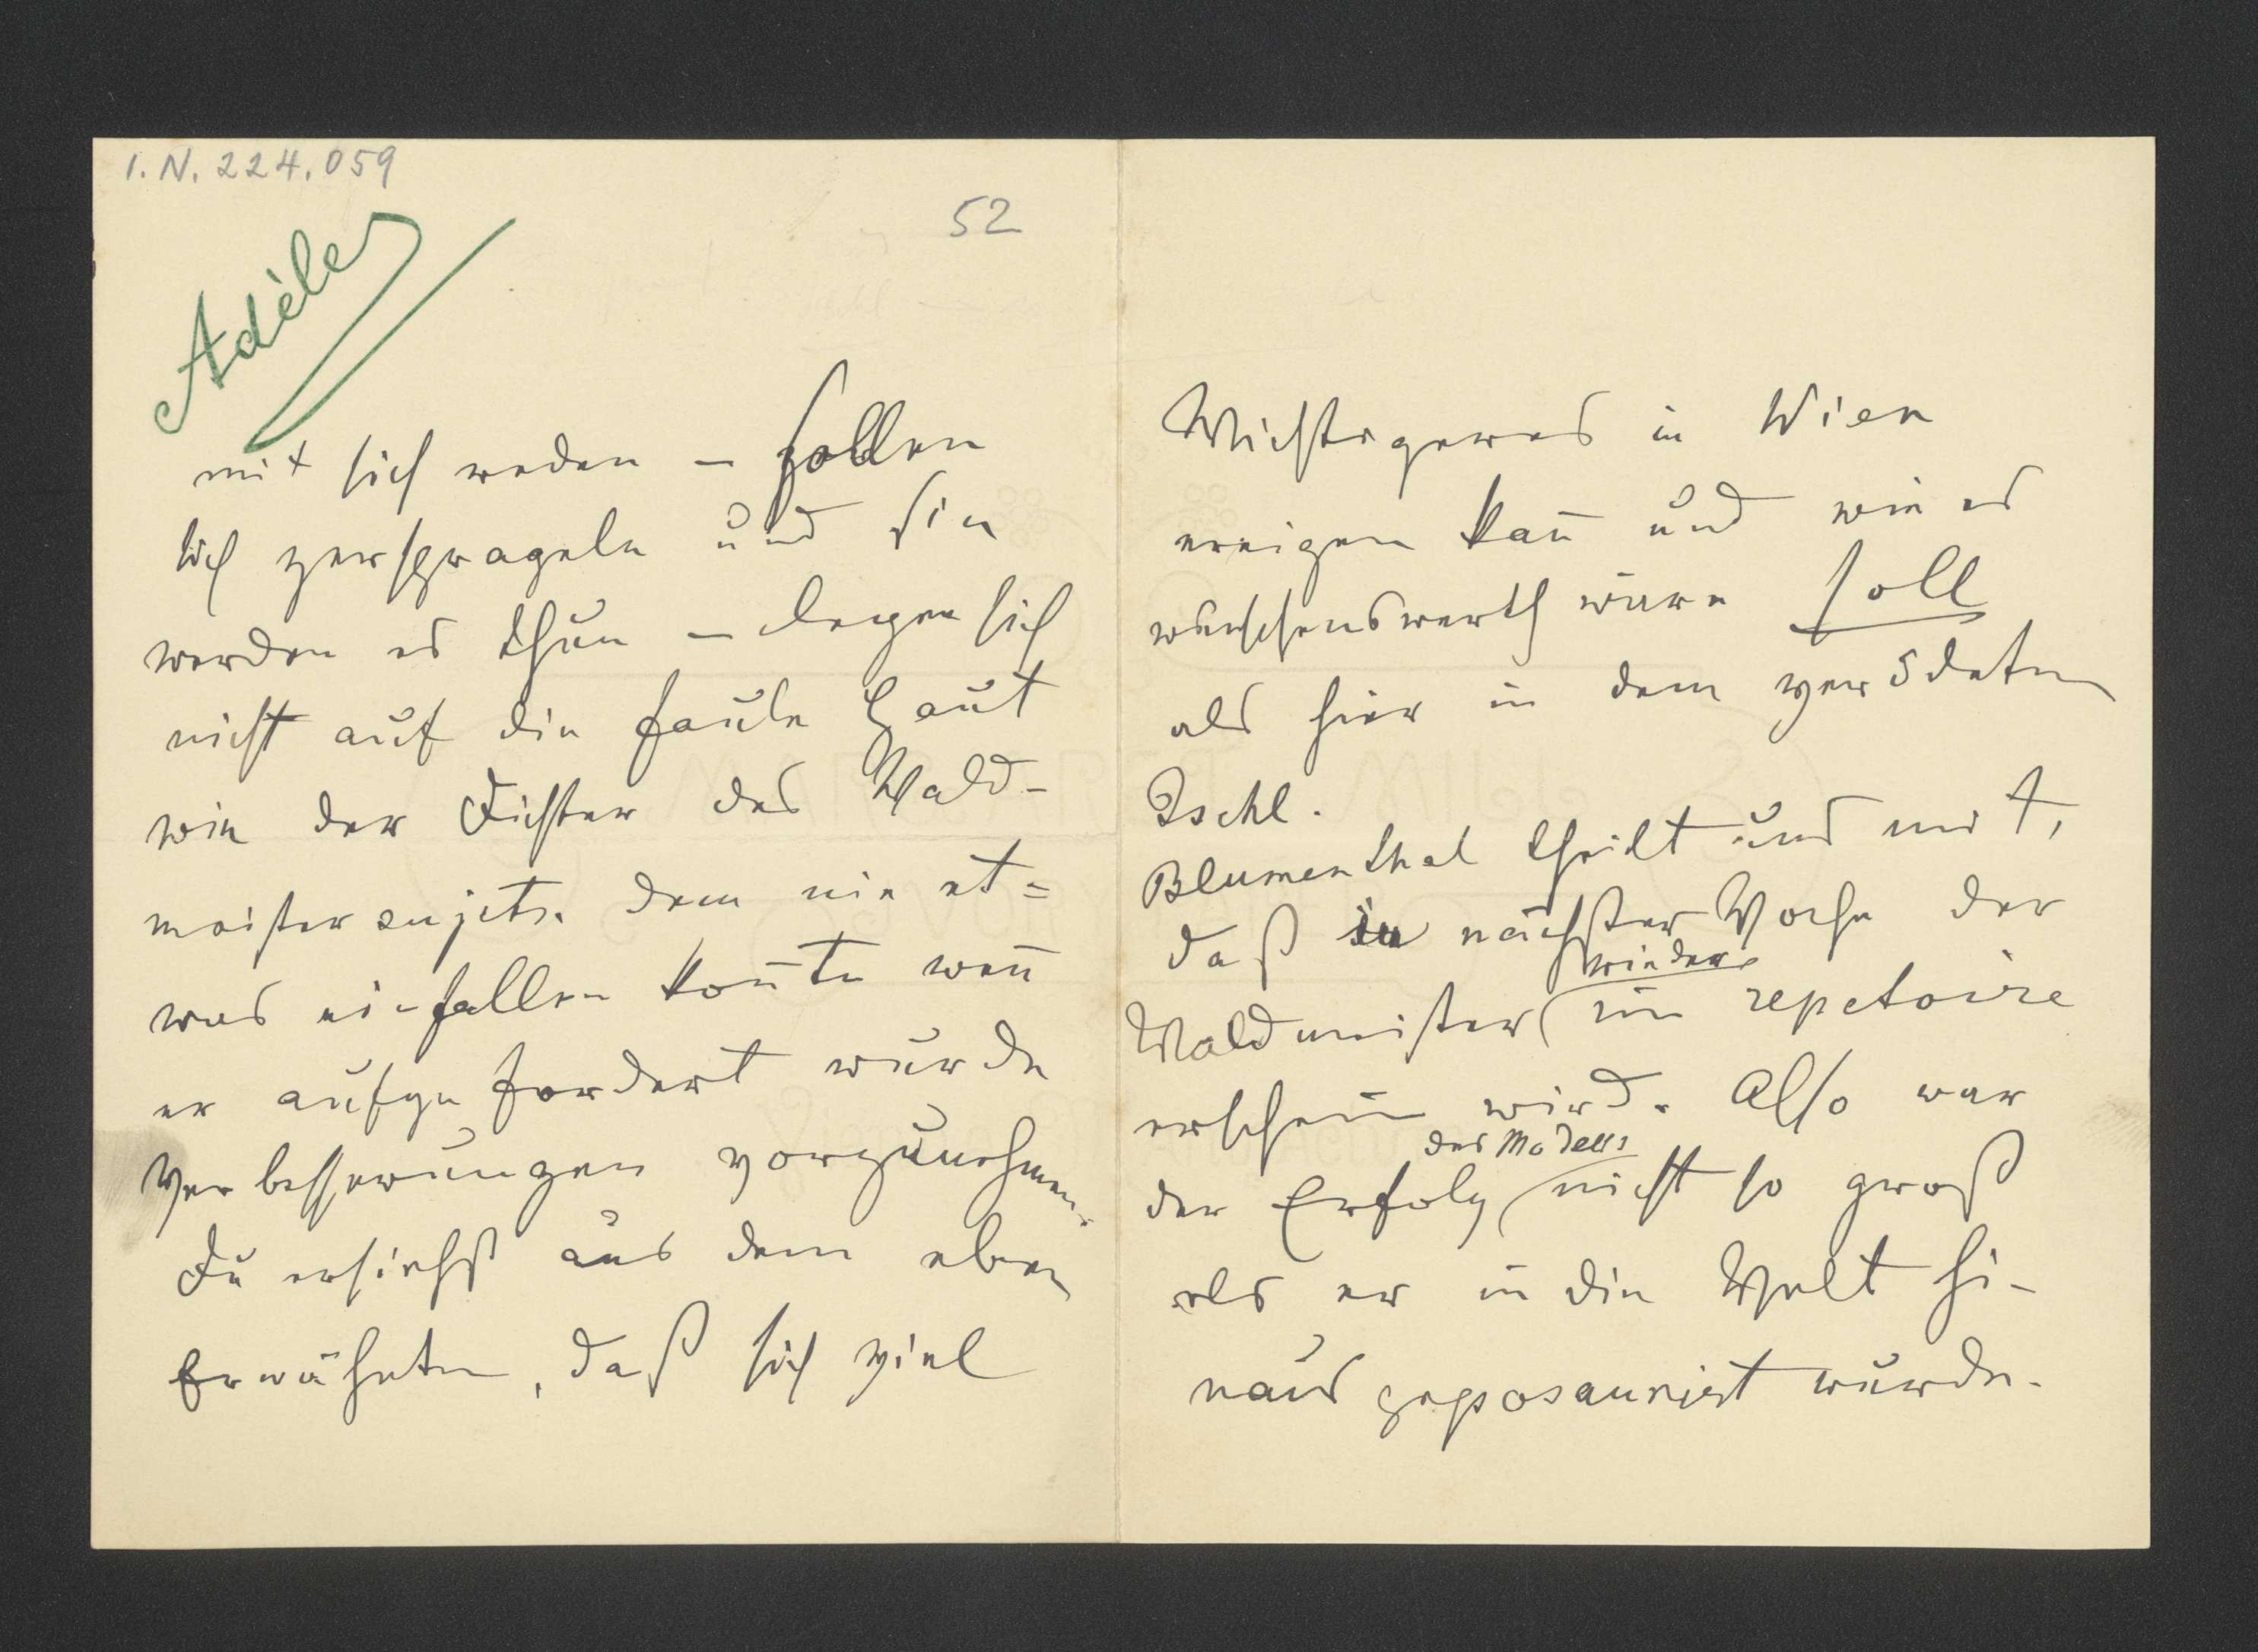 I. N. 224.059
52
Adèle
mit sich reden – sollen
sich zersprageln und Sie
werden es thun – legen sich
nicht auf die faule Haut
wie der Dichter des Wald-
meistersujets. dem nie et=
was einfallen kon̄te wen̄
er aufgefordert wurde
Verbesserungen vorzunehmen.
Du ersiehst aus dem eben
Erwähnten, daß sich viel
Wichtigeres in Wien
ereigen kan̄ und wie es
wünschenswerth wäre soll
als hier in dem verödeten
Ischl.
Blumenthal theilt uns mit,
daß in nächster Woche der
wieder
Waldmeister im repetoire
erschein wird. Also war
des Modells
der Erfolg nicht so groß
als er in die Welt hi-
naus geposaunirt wurde.